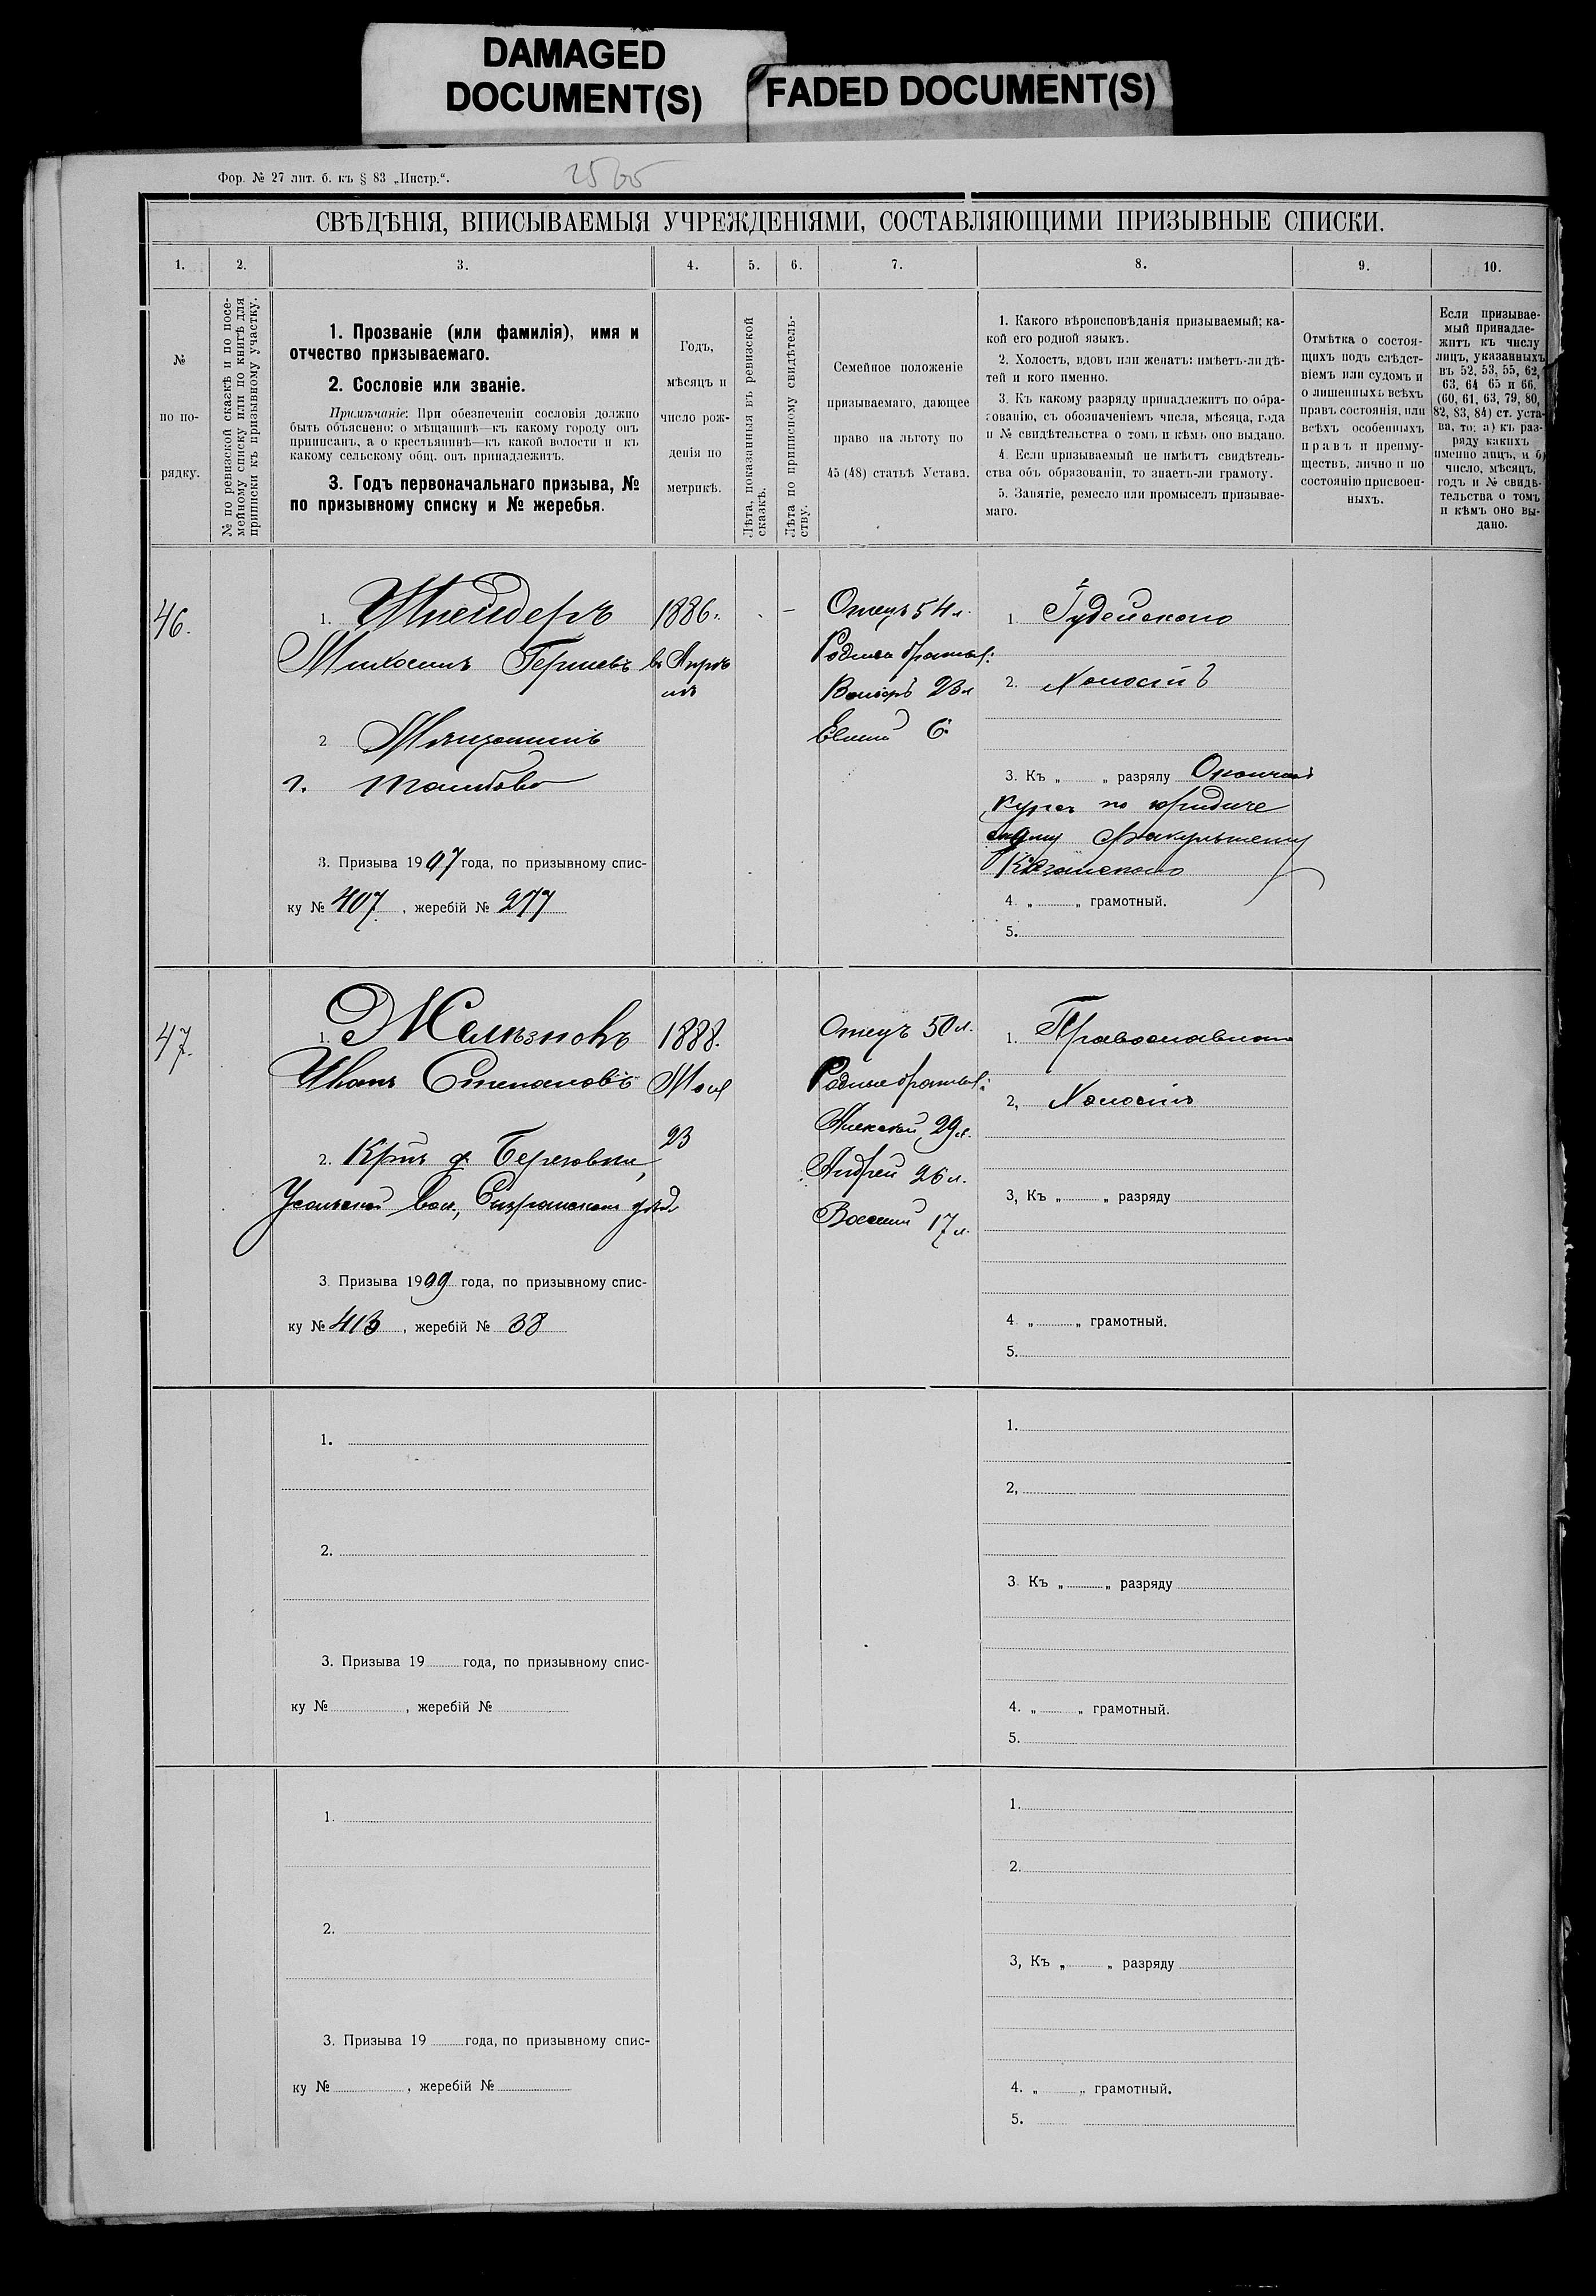 DAMAGED
DOCUMENT(S)
FADED DOCUMENT(S)
Фор. № 27 лит. б. къ § 83 „Инстр.“.
СВѢДѢНІЯ, ВПИСЫВАЕМЫЯ УЧРЕЖДЕНІЯМИ, СОСТАВЛЯЮЩИМИ ПРИЗЫВНЫЕ СПИСКИ.
1. 2. 3. 4. 5. 6. 7. 8. 9. 10.
№
по по-
рядку.
№ по ревизской сказкѣ и по посе-
мейному списку или по книгѣ для
приписки къ призывному участку.
1. Прозваніе (или фамилія), имя и
отчество призываемаго.
2. Сословіе или званіе.
Примѣчаніе: При обезпеченіи сословія должно
быть объяснено: о мѣщанинѣ—къ какому городу онъ
приписанъ, а о крестьянинѣ—къ какой волости и къ
какому сельскому общ. онъ принадлежитъ.
3. Годъ первоначальнаго призыва, №
по призывному списку и № жеребья.
Годъ,
мѣсяцъ и
число рож-
денія по
метрикѣ.
Лѣта, показанныя въ ревизской
сказкѣ.
Лѣта по приписному свидѣтель-
ству.
Семейное положеніе
призываемаго, дающее
право на льготу по
45 (48) статьѣ Устава.
1. Какого вѣроисповѣданія призываемый; ка-
кой его родной языкъ.
2. Холостъ, вдовъ или женатъ: имѣетъ-ли дѣ-
тей и кого именно.
3. Къ какому разряду принадлежитъ по обра-
зованію, съ обозначеніемъ числа, мѣсяца, года
и № свидѣтельства о томъ и кѣмъ оно выдано.
4. Если призываемый не имѣетъ свидѣтель-
ства объ образованіи, то знаетъ-ли грамоту.
5. Занятіе, ремесло или промыселъ призывае-
маго.
Отмѣтка о состоя-
щихъ подъ слѣдст-
віемъ или судомъ и
о лишенныхъ всѣхъ
правъ состоянія, или
всѣхъ особенныхъ
правъ и преиму-
ществъ, лично и по
состоянію присвоен-
ныхъ.
Если призывае-
мый принадле-
житъ къ числу
лицъ, указанныхъ
въ 52, 53, 55, 62,
63, 64 65 и 66,
(60, 61, 63, 79, 80,
82, 83, 84) ст. уста-
ва, то: а) къ раз-
ряду какихъ
именно лицъ, и б)
число, мѣсяцъ,
годъ и № свидѣ-
тельства о томъ
и кѣмъ оно вы-
дано.
46.
1. Шнейдеръ
Михаилъ Гершевъ
2 Мѣщанинъ
г. Тамбова
3. Призыва 1907 года, по призывному спис-
ку № 407, жеребій № 277
1886.
Апрѣ
ля
Отецъ 54 л.
Родные братья:
23 л
6
1. Іудейскаго
2. Холостъ
3. Къ „ „ разряду Окончилъ
курсъ по юридиче
скому факультету
Казанскаго
4. „ „ грамотный.
5.
47.
1. Желѣзновъ
Иванъ Степановъ
2. Крнъ д. Березовки,
Усольской вол, Сызранскаго уѣзд
3. Призыва 1999 года, по призывному спис-
ку № 413, жеребій № 38
1888.
Мая
23
Отецъ 50 л.
Родные братья:
Алексѣй 29 л.
Андрей 26 л.
Василій 17 л.
1. Православнаго
2, Холостъ
3, Къ „ „ разряду
4 „ „ грамотный.
5.
1.
2.
3. Призыва 19 года, по призывному спис-
ку № , жеребій №
1.
2,
3 Къ „ „ разряду
4. „ „ грамотный.
5.
1.
2.
3. Призыва 19 года, по призывному спис-
ку № , жеребій №
1.
2.
3, Къ „ „ разряду
4. „ „ грамотный.
5.